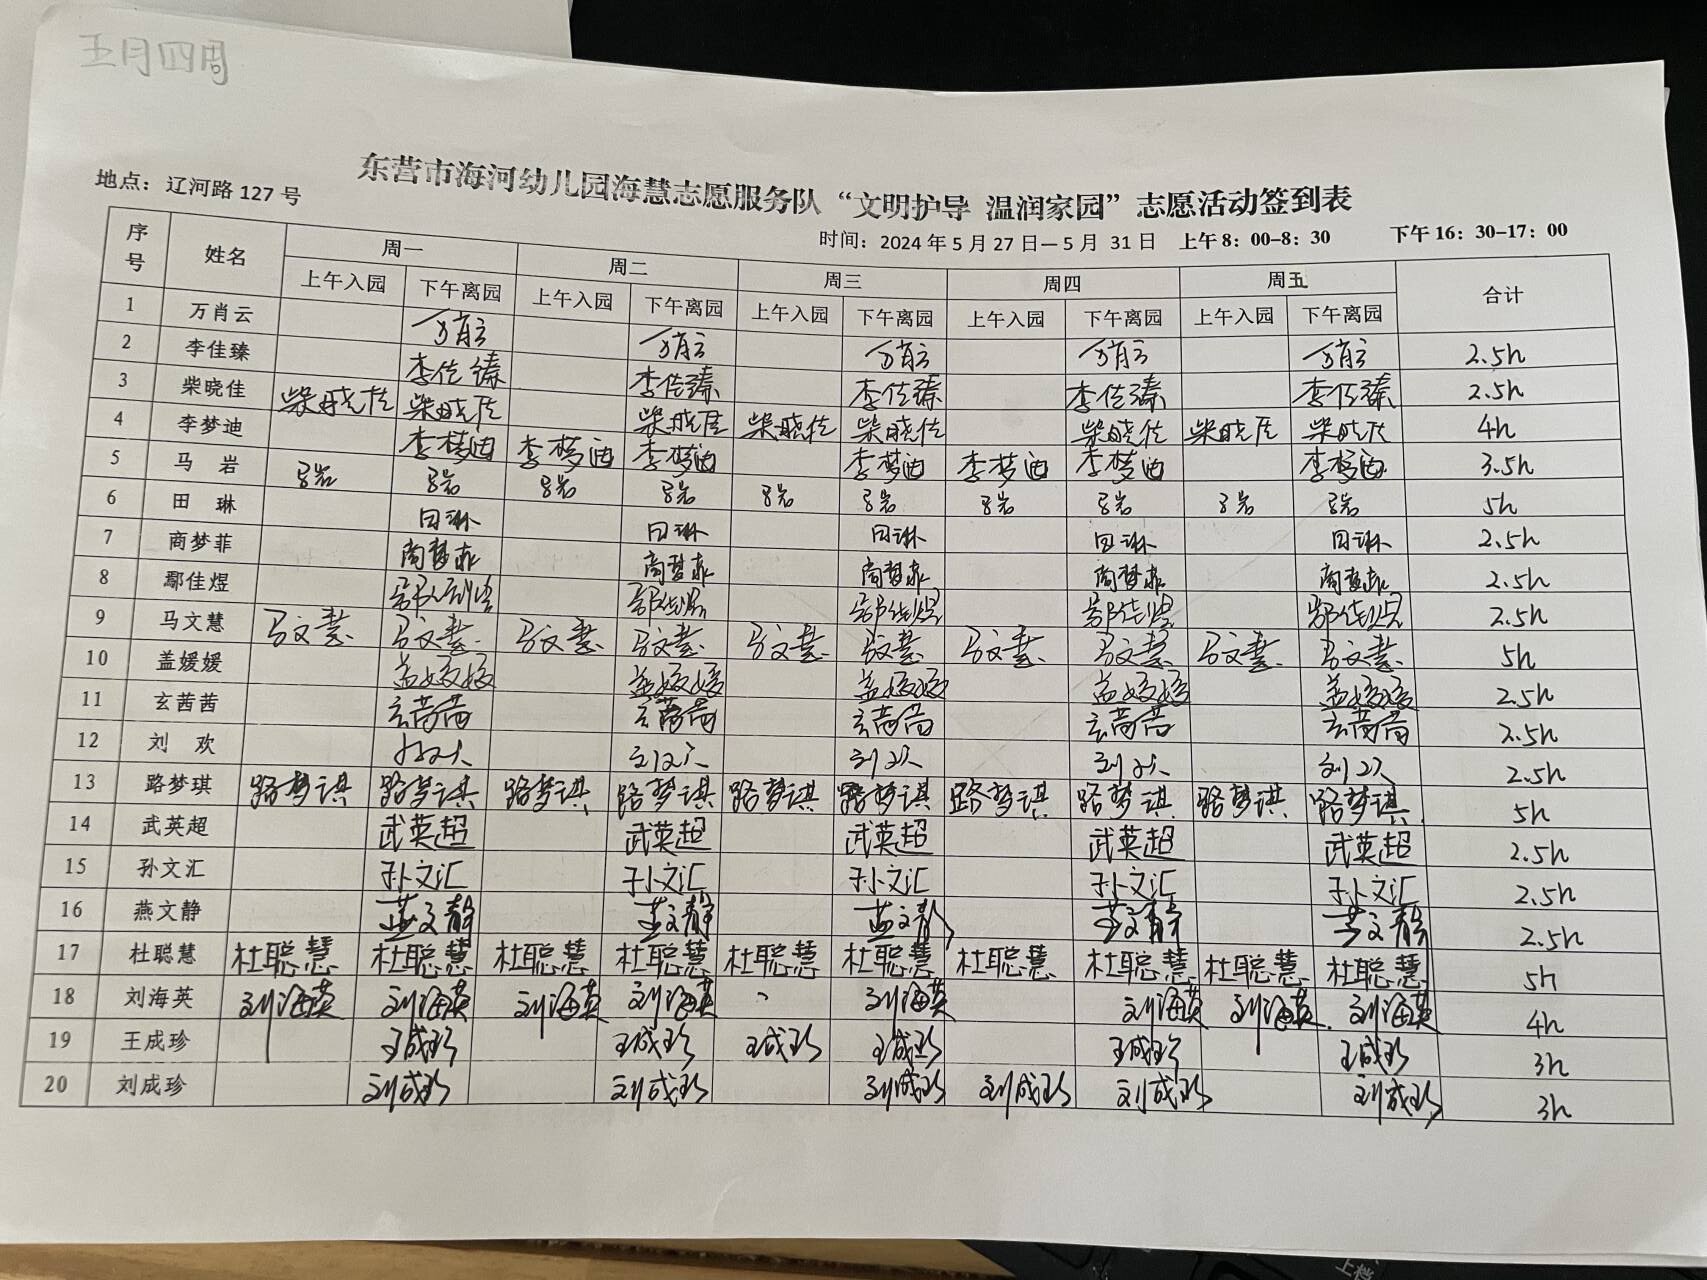 五月四周
东营市海河幼儿园海慧志愿服务队“文明护导 温润家园”志愿活动签到表
地点：辽河路127号
时间：2024年5月27日—5月 31日 上午8：00-8：30 下午16：30-17：00
序号 姓名 周一 周二 周三 周四 周五 合计
上午入园 下午离园 上午入园 下午离园 上午入园 下午离园 上午入园 下午离园 上午入园 下午离园
1 万肖云 万肖云 万肖云 万肖云 万肖云 万肖云 2.5h
2 李佳臻 李佳臻 李佳臻 李佳臻 李佳臻 李佳臻 2.5h
3 柴晓佳 柴晓佳 柴晓佳 柴晓佳 柴晓佳 柴晓佳 柴晓佳 柴晓佳 柴晓佳 4h
4 李梦迪 李梦迪 李梦迪 李梦迪 李梦迪 李梦迪 李梦迪 李梦迪 3.5h
5 马 岩 马岩 马岩 马岩 马岩 马岩 马岩 马岩 马岩 马岩 马岩 5h
6 田 琳 田琳 田琳 田琳 田琳 田琳 2.5h
7 商梦菲 商梦菲 商梦菲 商梦菲 商梦菲 商梦菲 2.5h
8 鄢佳煜 鄢佳煜 鄢佳煜 鄢佳煜 鄢佳煜 鄢佳煜 2.5h
9 马文慧 马文慧 马文慧 马文慧 马文慧 马文慧 马文慧 马文慧 马文慧 马文慧 马文慧 5h
10 盖媛媛 盖媛媛 盖媛媛 盖媛媛 盖媛媛 盖媛媛 2.5h
11 玄茜茜 玄茜茜 玄茜茜 玄茜茜 玄茜茜 玄茜茜 2.5h
12 刘 欢 刘欢 刘欢 刘欢 刘欢 刘欢 2.5h
13 路梦琪 路梦琪 路梦琪 路梦琪 路梦琪 路梦琪 路梦琪 路梦琪 路梦琪 路梦琪 路梦琪 5h
14 武英超 武英超 武英超 武英超 武英超 武英超 2.5h
15 孙文汇 孙文汇 孙文汇 孙文汇 孙文汇 孙文汇 2.5h
16 燕文静 燕文静 燕文静 燕文静 燕文静 燕文静 2.5h
17 杜聪慧 杜聪慧 杜聪慧 杜聪慧 杜聪慧 杜聪慧 杜聪慧 杜聪慧 杜聪慧 杜聪慧 杜聪慧 5h
18 刘海英 刘海英 刘海英 刘海英 刘海英 刘海英 刘海英 刘海英 刘海英 4h
19 王成珍 王成珍 王成珍 王成珍 王成珍 王成珍 王成珍 3h
20 刘成珍 刘成珍 刘成珍 刘成珍 刘成珍 刘成珍 刘成珍 3h
上档